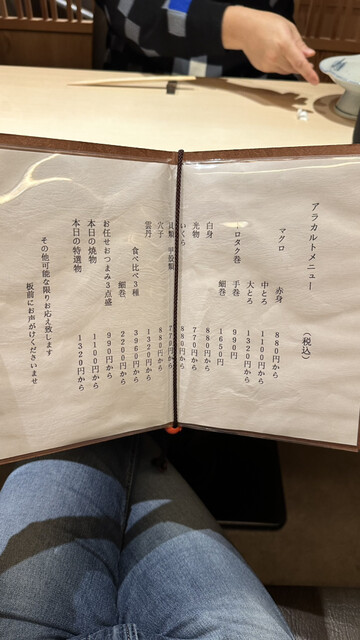 アラカルトメニュー
（税込）
マグロ　赤身　８８０円から
中とろ　１１００円から
大とろ　１３２０円から
トロタク巻　手巻　９９０円
細巻　１６５０円
白身　８８０円から
光物　８８０円から
いくら　８８０円から
貝類　７７０円から
穴子　８８０円から
雲丹　１３２０円から
食べ比べ３種　３９６０円から
細巻　２２００円から
お任せおつまみ３点盛　９９０円から
本日の焼物　１１００円から
本日の特選物　１３２０円から
その他可能な限りお応え致します
板前にお声がけくださいませ